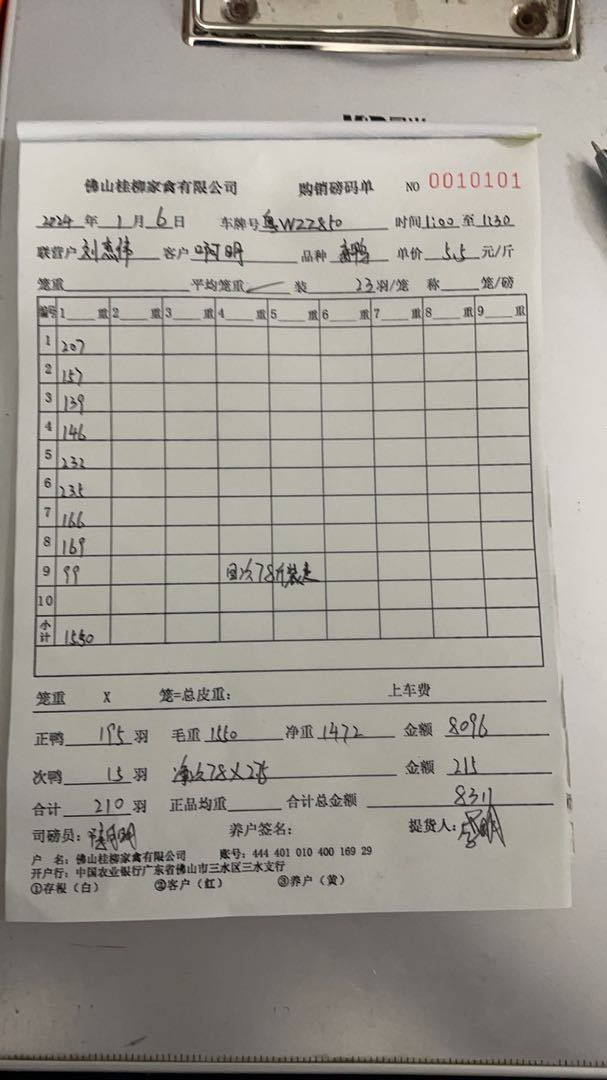 佛山桂柳家禽有限公司 购销磅码单 NO 0010101
2024 年 1 月 6 日 车牌号 粤W22850 时间 1:00 至 1:30
联营户 刘杰伟 客户 阿明 品种 鸭 单价 5.5 元/斤
笼重 平均笼重 装 23 羽/笼 称 笼/磅
编号 1 重 2 重 3 重 4 重 5 重 6 重 7 重 8 重 9 重
1 207
2 157
3 139
4 146
5 232
6 235
7 166
8 169
9 99 次78斤装走
10
小计 1550
笼重 X 笼=总皮重: 上车费
正鸭 195 羽 毛重 1550 净重 1472 金额 8096
次鸭 15 羽 净次78X2.75 金额 215
合计 210 羽 正品均重 合计总金额 8311
司磅员: 养户签名: 提货人:
户 名: 佛山桂柳家禽有限公司 账号: 444 401 010 400 169 29
开户行: 中国农业银行广东省佛山市三水区三水支行
①存根(白) ②客户(红) ③养户(黄)